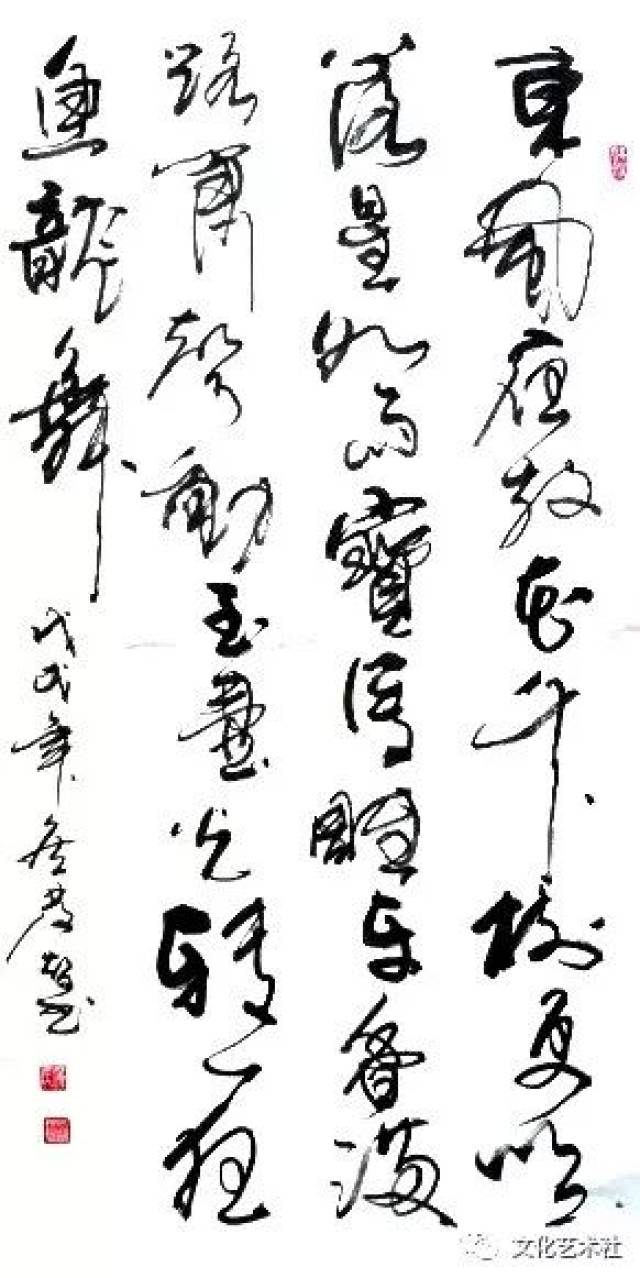 東風夜放花千樹更吹
落星如雨寶馬雕車香滿
路簫聲動玉壺光轉一夜
魚龍舞
戊戌年
文化艺术社